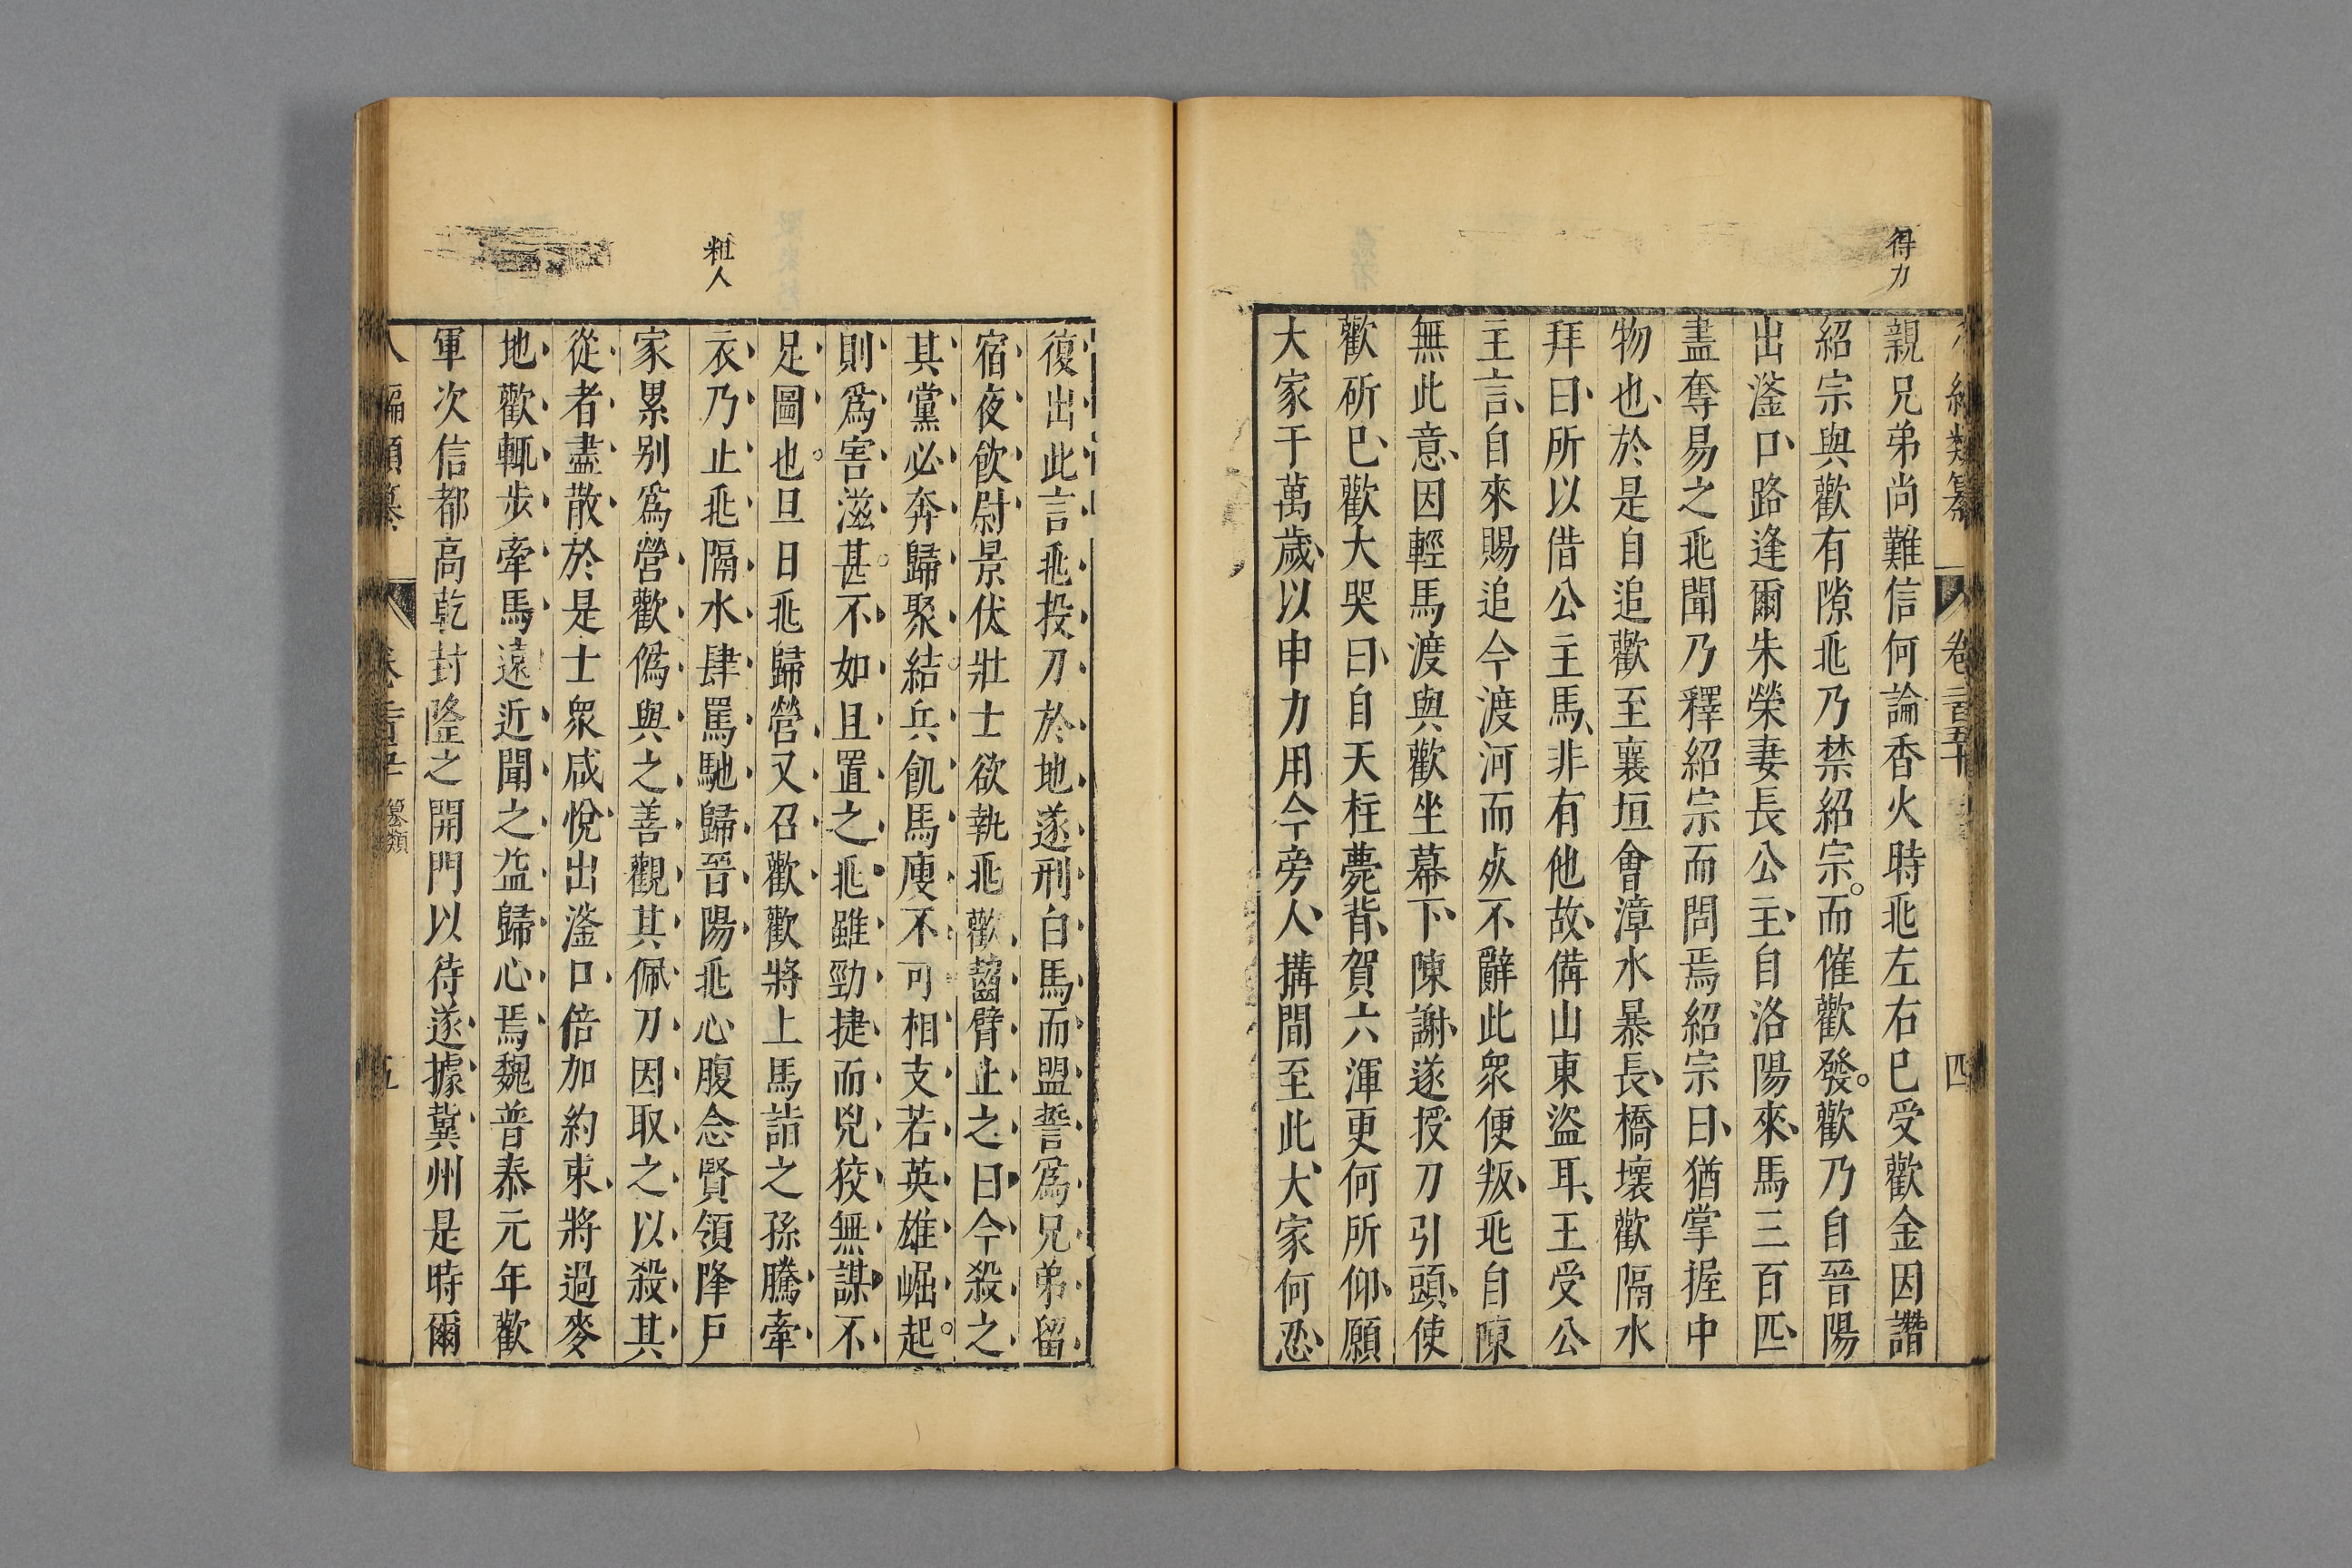 得力
親兄弟尚難信何論香火時兆左右巳受歡金因譖
紹宗與歡有隙兆乃禁紹宗。而催歡發。歡乃自晉陽
出滏口、路逢爾朱榮妻長公主、自洛陽來、馬三百匹、
盡奪易之兆聞乃釋紹宗而問焉紹宗曰、猶掌握中
物也、於是自追歡至襄垣會漳水暴長、橋壞歡隔水
拜曰、所以借公主馬、非有他故、備山東盜耳、王受公
主言、自來賜追今渡河而死不辭此衆便叛、兆自陳
無此意、因輕馬渡與歡坐幕下、陳謝、遂授刀引頭、使
歡斫、巳、歡大哭曰、自天柱薨背、賀六渾更何所仰、願
大家千萬歲、以申力用今旁人、搆間至此、大家何忍、
復出此言兆投刀於地遂刑白馬而盟誓爲兄弟留
宿夜飲尉景伏壯士欲執兆歡齧臂止之曰今殺之
其黨必奔歸聚結兵飢馬瘦不可相支若英雄崛起。
則爲害滋甚。不如且置之兆雖勁捷而兇狡無謀不
足圖也。旦日兆歸營又召歡歡將上馬詣之孫騰牽
衣乃止兆隔水肆罵馳歸晉陽兆心腹念賢領降戶
家累别爲營歡僞與之善觀其佩刀因取之以殺其
從者盡散於是士衆咸悅出滏口倍加約束將過麥
地歡輒步牽馬遠近聞之益歸心焉魏普泰元年歡
軍次信都高乾封隆之開門以待遂據冀州是時爾
粗人
卷
四
五